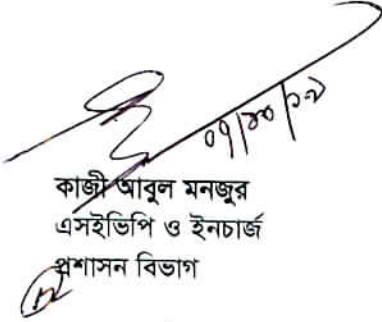 ০৭/১০/১৯
কাজী আবুল মনজুর
এসইভিপি ও ইনচার্জ
প্রশাসন বিভাগ